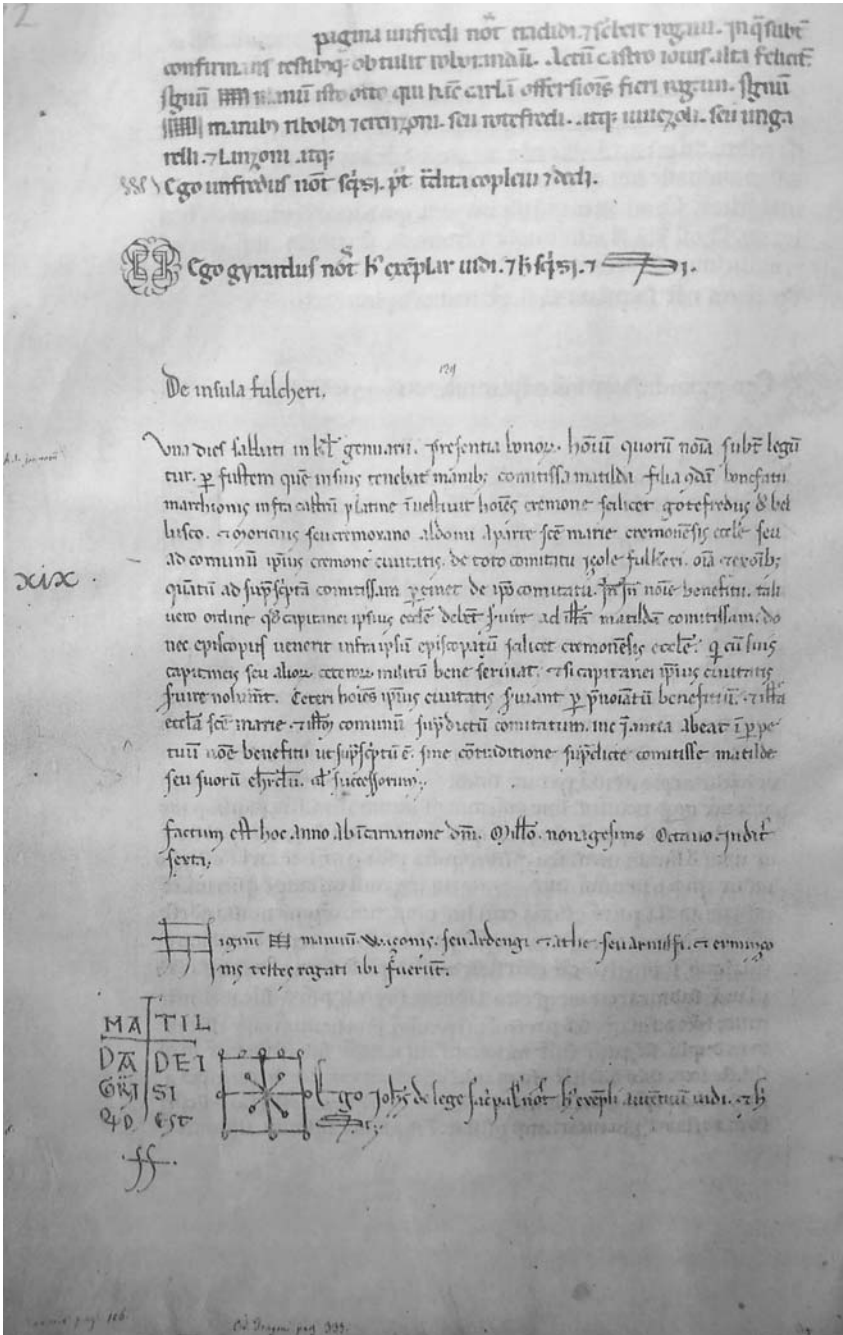 2
pagina unfredi not̄ tradidi. ⁊ sc̄bere rogaui. In q̄ subt̄
confirmans testibꝫq; obtulit roborandā. Actū castro iouis alta felicit̄
signū manuū isto otto qui hāc carl̄a offersionis fieri rogauit. signū
manibꝫ riboldi ⁊ erenzoni. seu rotefredi. atq; uuezoli. seu unga
relli. ⁊ Linzoni atq;
Ego unfredus not̄ scripsi. p̄t t̄dita copleui ⁊ dedi.
Ego gyrardus not̄ h̄ exēplar uidi. ⁊ h̄ sc̄psi. ⁊
129
De insula fulcheri.
Una dies sabbati in kl̄ genuarii. Presentia bonoꝝ. hōiū quorū nōia subt̄ legū
tur. ꝑ fustem quē insuis tenebat manibꝫ comitissa matilda filia qdā bonefatii
marchionis infra castrū platine īuestiuit hoiēs cremone scilicet gotefredus de bel
lusco. ⁊ moricius seu cremoxano aldoini a parte scē marie cremonēsis eccl̄e seu
ad comunū ip̄ius cremone ciuitatis. de toto comitatu izole fulkeri. oīa ⁊ exoīb;
quātū ad sup̄sc̄ptā comitissam ꝑtinet de ip̄o comitatu. noīe benefitii. tali
uero ordine qd̄ capitanei ipsius eccl̄e debēt s̄uire ad illā matildā comitissam. do
nec episcopus uenerit infra ipsū episcopatū scilicet cremonēsis eccl̄e. q̄ cū suis
capitaneis seu alioꝝ ceteroꝝ militū bene seruiat. ⁊ si capitanei ip̄ius ciuitatis
s̄uire noluīt. Ceteri hoiēs ip̄ius ciuitatis s̄uiant ꝑ p̄noiatū benefitiū. ⁊ illā
eccl̄a scē marie. ⁊ illō comunū sup̄dictū comitatum. abeat ī ꝑpe
tuū noē benefitii ut sup̄sc̄ptū ē. sine cōtraditione sup̄dicte comitisse matilde
seu suorū successorum.
factum est hoc anno ab īcarnatione dn̄i. Mill̄o. nonagesimo Octauo. indit̄
sexta.
Signū manuū Wazonis. seu Ardengi ⁊ athe seu arnulfi. ⁊ ermizo
nis testes rogati ibi fuerūt.
xix.
MA TIL
DA DEI
GRI SI
QD EST
.ff.
Ego Ioh̄s de lege sac̄ pal̄ not̄ h̄ exēpli autenticū uidi. ⁊ h̄
pag. 106.
Cod. pag. 333.